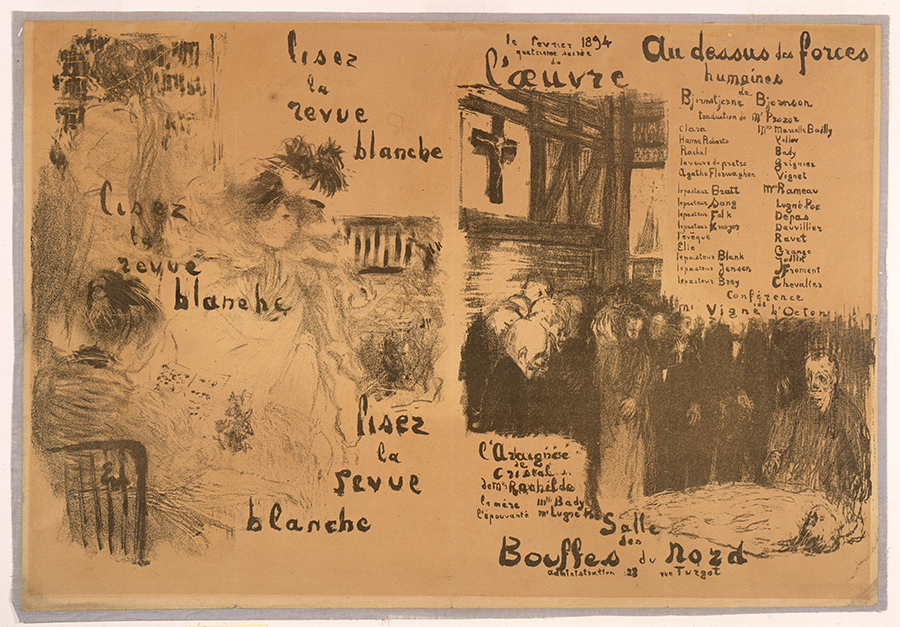 lisez
la
revue
blanche
lisez
la
revue
blanche
lisez
la
revue
blanche
le fevrier 1894
de
l'œuvre
Au dessus des forces
humaines
de
Bjornstjerne Bjornson
traduction de Mr Prozor
Clara Mmes Marcelle Bailly
Hanna Roberts Yellov
Rachel Bady
la veuve du pretre Grignier
Agathe Florvaghen Vignet
le pasteur Bratt Mrs Rameau
le pasteur Sang Lugné-Poe
le pasteur Falk Depas
le pasteur Kroyer Dauvillier
l'évêque Ravet
Elie Grange
le pasteur Blank Jodlik
le pasteur Jensen J Froment
le pasteur Brey Chevallet
Conférence
de
Mr Vigné d'Octon
l'Araignée
de
Cristal
de Me Rachilde
la mère Mlle Bady
l'épouvanté Mr Lugné Poe
Salle
des
Bouffes du Nord
administration 23 rue Turgot